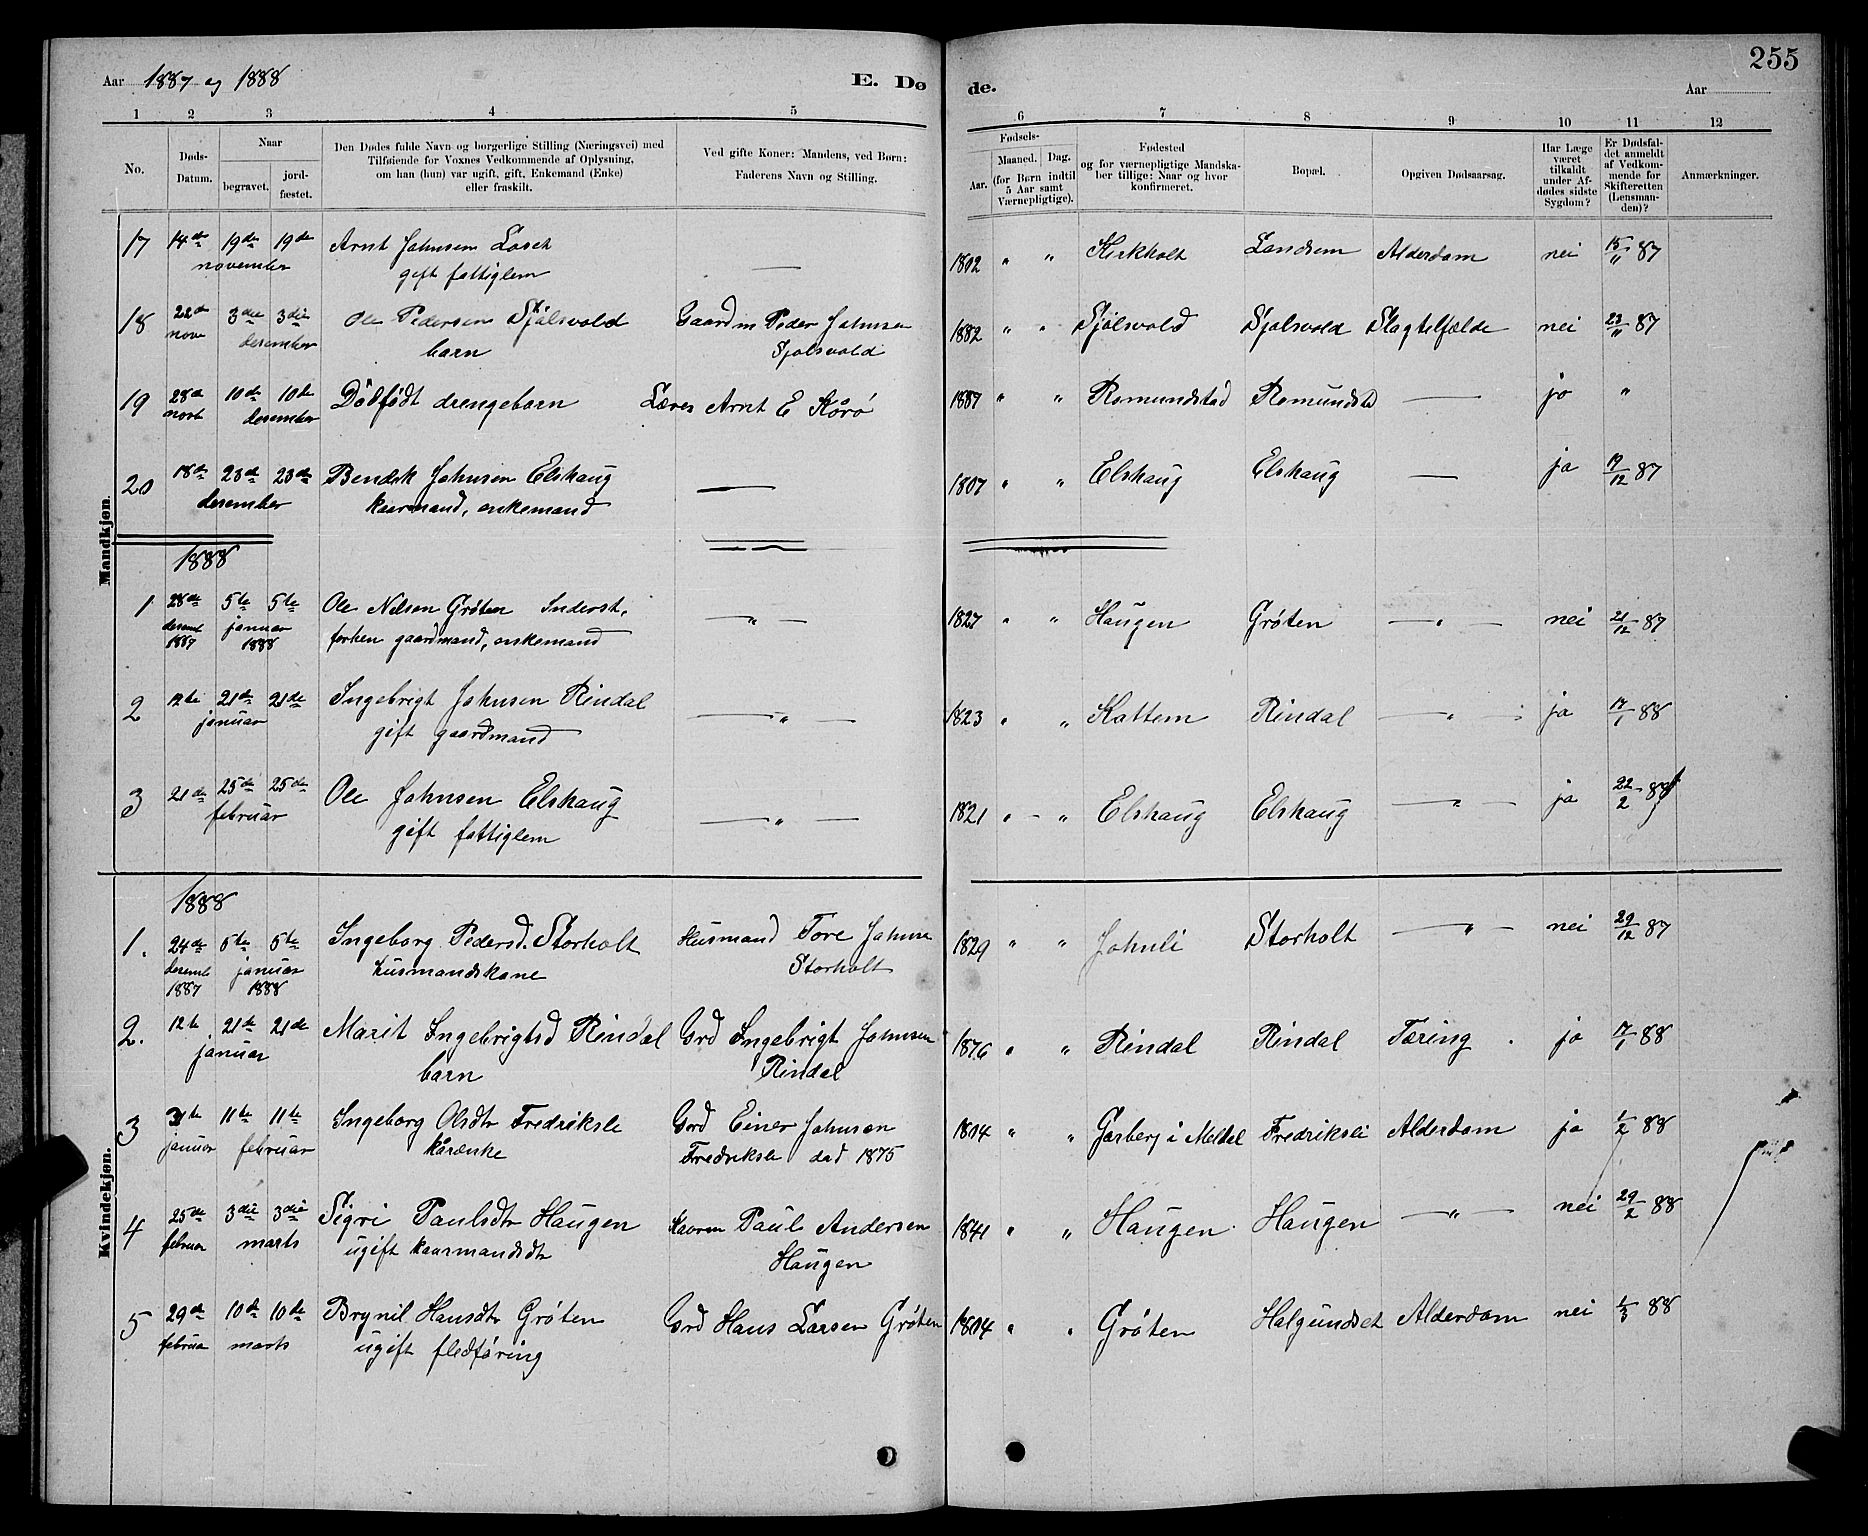 255
Aar 1887 og 1888 E. Dø de. Aar
1 2 3 4 5 6 7 8 9 10 11 12
No.
Døds-Datum.
Naar
begravet.
jord-fæstet.
Den Dødes fulde Navn og borgerlige Stilling (Næringsvei) med
Tilføiende for Voxnes Vedkommende af Oplysning,
om han (hun) var ugift, gift, Enkemand (Enke)
eller fraskilt.
Ved gifte Koner: Mandens, ved Børn:
Faderens Navn og Stilling.
Fødsels-
Aar.
Maaned. Dag.
(for Børn indtil
5 Aar samt
Værnepligtige).
Fødested
og for værnepligtige Mandska-
ber tillige: Naar og hvor
konfirmeret.
Bopæl.
Opgiven Dødsaarsag.
Har Læge
været
tilkaldt
under Af-
dødes sidste
Sygdom?
Er Dødsfal-
det anmeldt
af Vedkom-
mende for
Skifteretten
(Lensman-
den)?
Anmærkninger.
Mandkjøn.
17 14de 19de 19de Arnt Johnsen Loset — 1802 " " Kirkholt Landsem Alderdom nei 15/11 87
november gift fattiglem
18 22de 3die 3die Ole Pedersen Sjølsvold Gaardm Peder Johnsen 1882 " " Sjølsvold Sjolsvold Slagtilfælde nei 23/11 87
nov desember barn Sjolsvold
19 28de 10de 10de Dödfödt drengebarn Lærer Arnt E Körö 1887 " " Romundstad Romundstd — jo "
novb desember
20 18de 23de 23de Bendik Johnsen Elshaug — 1807 " " Elshaug Elshaug — ja 19/12 87
desember kaarmand, enkemand
1888
1 28de 5te 5te Ole Nelsen Grøten Inderst, — " — 1827 " " Haugen Grøten — " — nei 21/12 87
desemb januar forhen gaardmand, enkemand
1887 1888
2 12te 21de 21de Ingebrigt Johnsen Rindal — " — 1823 " " Kattem Rindal — " — ja 17/1 88
januar gift gaardmand
3 21de 25de 25de Ole Johnsen Elshaug — " — 1821 " — " Elshaug Elshaug — " — ja 22/2 88
februar gift fattiglem
Kvindekjøn.
1888
1. 24de 5te 5te Ingeborg Pedersd. Storholt Husmand Tore Johnse 1829 " " Johnli Storholt — " — nei 29/12 87
desemb januar husmandskone Storholt
1887 1888
2. 12te 21de 21de Marit Ingebrigtsd Rindal Grd Ingebrigt Johnsen 1876 " " Rindal Rindal Tæring ja 17/1 88
januar barn Rindal
3 31te 11te 11te Ingeborg Olsdtr Fredriksli Grd Einer Johnsen 1804 " " Garberg i Meldal Fredriksli Alderdom ja 1/2 88
januar februar kårenke Fredriksli död 1875
4 25de 3die 3die Sigri Paulsdtr Haugen Kaarm Paul Andersen 1841 " " Haugen Haugen — " — nei 29/2 88
februar marts ugift kaarmandsdtr Haugen
5 29de 10de 10de Brynil Hansdtr Grøten Grd Hans Larsen Grøten 1804 " " Grøten Halgundset Alderdom nei 1/3 88
februar marts ugift fledföring